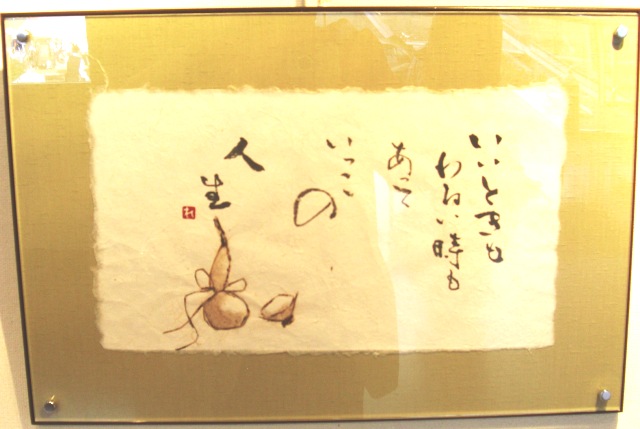 いいときも
わるい時も
あって
いっこ
の
人
生